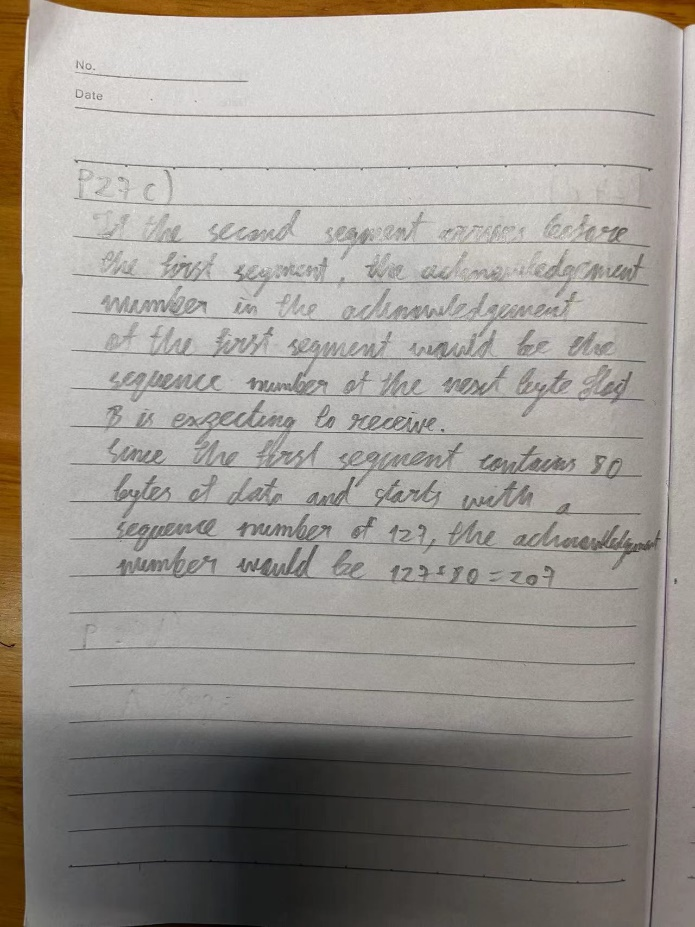 No.
Date
P27 c)
If the second segment arrives before
the first segment, the acknowledgement
number in the acknowledgement
of the first segment would be the
sequence number of the next byte Host
B is expecting to receive.
Since the first segment contains 80
bytes of data and starts with a
sequence number of 127, the acknowledgement
number would be 127+80=207